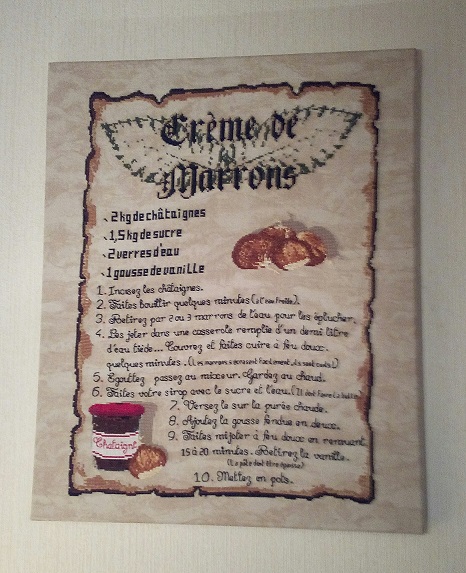 Crème de
Marrons
2 kg de châtaignes
1,5 kg de sucre
2 verres d'eau
1 gousse de vanille
1. Incisez les châtaignes.
2. Faites bouillir quelques minutes (à l'eau froide).
3. Retirez par 2 ou 3 marrons de l'eau pour les éplucher.
4. Les jeter dans une casserole remplie d'un demi litre
d'eau tiède... Couvrez et faites cuire à feu doux
quelques minutes. (Les marrons s'écrasent facilement, ils sont cuits!)
5. Egouttez passez au mixeur. Gardez au chaud.
6. Faites votre sirop avec le sucre et l'eau. (Il doit faire la bulle)
7. Versez le sur la purée chaude.
8. Ajoutez la gousse fendue en deux.
9. Faites mijoter à feu doux en remuant
15 à 20 minutes. Retirez la vanille.
(La pâte doit être épaisse)
10. Mettez en pots.
Chataigne